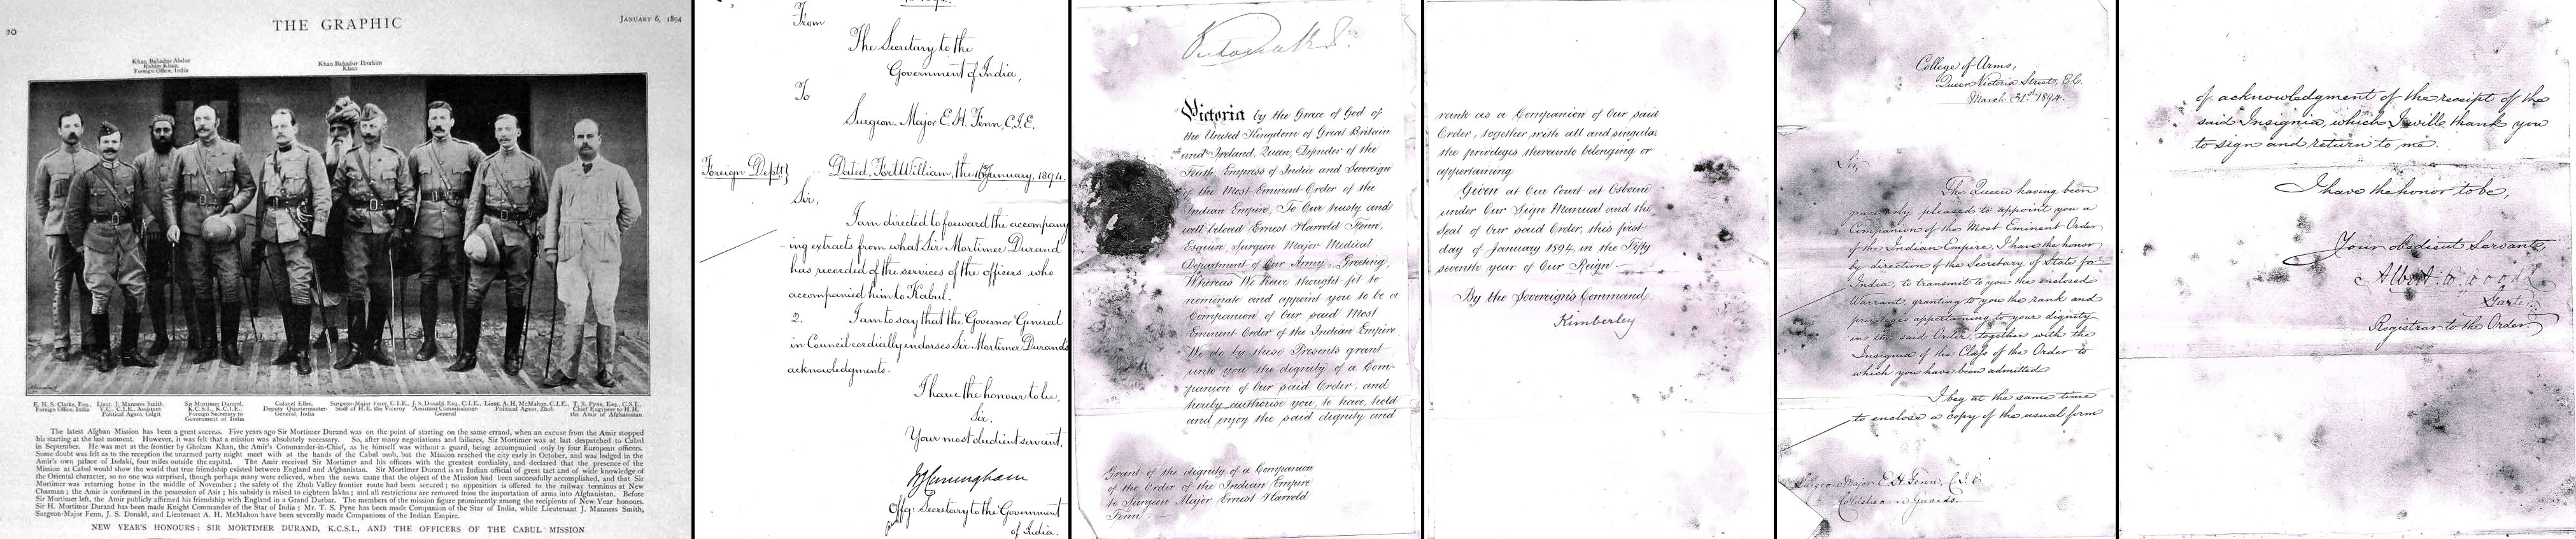 20
THE GRAPHIC
JANUARY 6, 1894
Khan Bahadur Abdur
Rahim Khan,
Foreign Office, India
Khan Bahadur Ibrahim
Khan
E. H. S. Clarke, Esq.,
Foreign Office, India
Lieut. J. Manners Smith,
V.C., C.I.E., Assistant
Political Agent, Gilgit
Sir Mortimer Durand,
K.C.S.I., K.C.I.E.,
Foreign Secretary to
Government of India
Colonel Elles,
Deputy Quartermaster-
General, India
Surgeon-Major Fenn, C.I.E.,
Staff of H.E. the Viceroy
J. S. Donald, Esq., C.I.E.,
Assistant Commissioner-
General
Lieut. A. H. McMahon, C.I.E.,
Political Agent, Zhob
T. S. Pyne, Esq., C.S.I.,
Chief Engineer to H.H.
the Amir of Afghanistan
The latest Afghan Mission has been a great success. Five years ago Sir Mortimer Durand was on the point of starting on the same errand, when an excuse from the Amir stopped
his starting at the last moment. However, it was felt that a mission was absolutely necessary. So, after many negotiations and failures, Sir Mortimer was at last despatched to Cabul
in September. He was met at the frontier by Gholam Khan, the Amir's Commander-in-Chief, as he himself was without a guard, being accompanied only by four European officers.
Some doubt was felt as to the reception the unarmed party might meet with at the hands of the Cabul mob, but the Mission reached the city early in October, and was lodged in the
Amir's own palace of Indaki, four miles outside the capital. The Amir received Sir Mortimer and his officers with the greatest cordiality, and declared that the presence of the
Mission at Cabul would show the world that true friendship existed between England and Afghanistan. Sir Mortimer Durand is an Indian official of great tact and of wide knowledge of
the Oriental character, so no one was surprised, though perhaps many were relieved, when the news came that the object of the Mission had been successfully accomplished, and that Sir
Mortimer was returning home in the middle of November; the safety of the Zhob Valley frontier route had been secured; no opposition is offered to the railway terminus at New
Charman; the Amir is confirmed in the possession of Asir; his subsidy is raised to eighteen lakhs; and all restrictions are removed from the importation of arms into Afghanistan. Before
Sir Mortimer left, the Amir publicly affirmed his friendship with England in a Grand Durbar. The members of the mission figure prominently among the recipients of New Year honours.
Sir H. Mortimer Durand has been made Knight Commander of the Star of India; Mr. T. S. Pyne has been made Companion of the Star of India, while Lieutenant J. Manners Smith,
Surgeon-Major Fenn, J. S. Donald, and Lieutenant A. H. McMahon have been severally made Companions of the Indian Empire.
NEW YEAR'S HONOURS: SIR MORTIMER DURAND, K.C.S.I., AND THE OFFICERS OF THE CABUL MISSION
From
The Secretary to the
Government of India,
To
Surgeon-Major E. H. Fenn, C.I.E.
Foreign Deptt}
Dated, Fort William, the 16 January, 1894.
Sir,
I am directed to forward the accompany
-ing extracts from what Sir Mortimer Durand
has recorded of the services of the officers who
accompanied him to Kabul.
2. I am to say that the Governor General
in Council cordially endorses Sir Mortimer Durand's
acknowledgments.
I have the honour to be,
Sir,
Your most obedient servant,
Cuningham
Offg: Secretary to the Government
of India.
Victoria R I
Victoria by the Grace of God of
the United Kingdom of Great Britain
and Ireland, Queen, Defender of the
Faith, Empress of India and Sovereign
of the Most Eminent Order of the
Indian Empire, To Our trusty and
well beloved Ernest Harrold Fenn,
Esquire, Surgeon Major Medical
Department of Our Army, Greeting,
Whereas We have thought fit to
nominate and appoint you to be a
Companion of Our said Most
Eminent Order of the Indian Empire.
We do by these Presents grant
unto you the dignity of a Com-
panion of Our said Order, and
hereby authorise you, to have, hold
and enjoy the said dignity and
Grant of the dignity of a Companion
of the Order of the Indian Empire
to Surgeon Major Ernest Harrold
Fenn
rank as a Companion of Our said
Order, together with all and singular
the privileges thereunto belonging or
appertaining
Given at Our Court at Osborne
under Our Sign Manual and the
Seal of Our said Order, this first
day of January 1894, in the Fifty
seventh year of Our Reign
By the Sovereign's Command
Kimberley
College of Arms,
Queen Victoria Street, E.C.
March 31st 1894.
Sir,
The Queen having been
graciously pleased to appoint you a
Companion of the Most Eminent Order
of the Indian Empire, I have the honor
by direction of the Secretary of State for
India, to transmit to you the enclosed
Warrant, granting to you the rank and
privileges appertaining to your dignity
in the said Order, together with the
Insignia of the Class of the Order to
which you have been admitted
I beg at the same time
to enclose a copy of the usual form
Surgeon Major E. H. Fenn, C.I.E.
Coldstream Guards.
of acknowledgment of the receipt of the
said Insignia, which I will thank you
to sign and return to me.
I have the honor to be,
Your obedient Servant,
Albert W. Woods
Garter
Registrar to the Order.